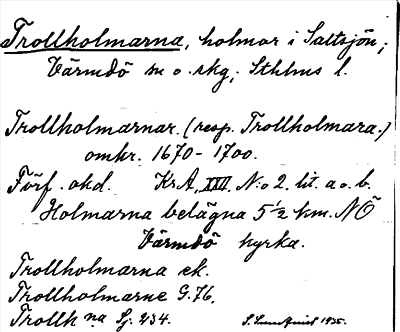 Trollholmarna, holmar i Saltsjön;
Värmdö sn o. skg; Sthlms l.
Trollholmarnar. (resp. Trollholmara.)
omkr. 1670-1700.
Förf. okd. Kr.A. XXVI N:o 2. lit. a o. b.
Holmarna belägna 5 1/2 km. NÖ
Värmdö kyrka.
Trollholmarna ek.
Trollholmarne G.76.
Trollh na Sj. 234. 1935.